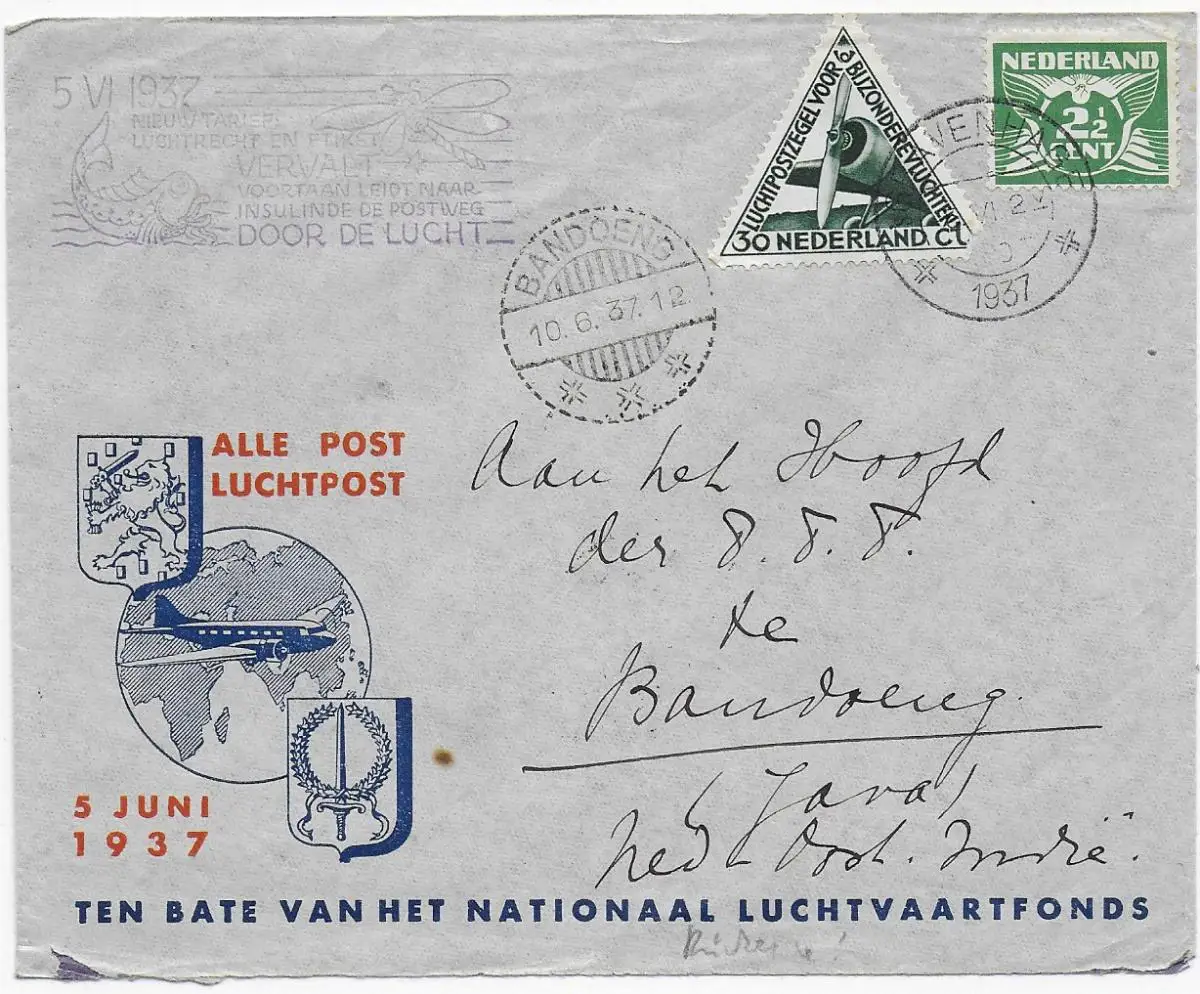 5 VI 1937
NIEUW TARIEF
LUCHTRECHT EN ETIKET
VERVALT
VOORTAAN LEIDT NAAR
INSULINDE DE POSTWEG
DOOR DE LUCHT
LUCHTPOSTZEGEL VOOR
BIJZONDERE VLUCHTEN
30 NEDERLAND. Ct.
NEDERLAND
2½
CENT
1937
BANDOENG
10.6.37.12
ALLE POST
LUCHTPOST
Aan het Hoofd
der
te
Bandoeng.
(Java)
Ned. Oost. Indië.
5 JUNI
1937
TEN BATE VAN HET NATIONAAL LUCHTVAARTFONDS